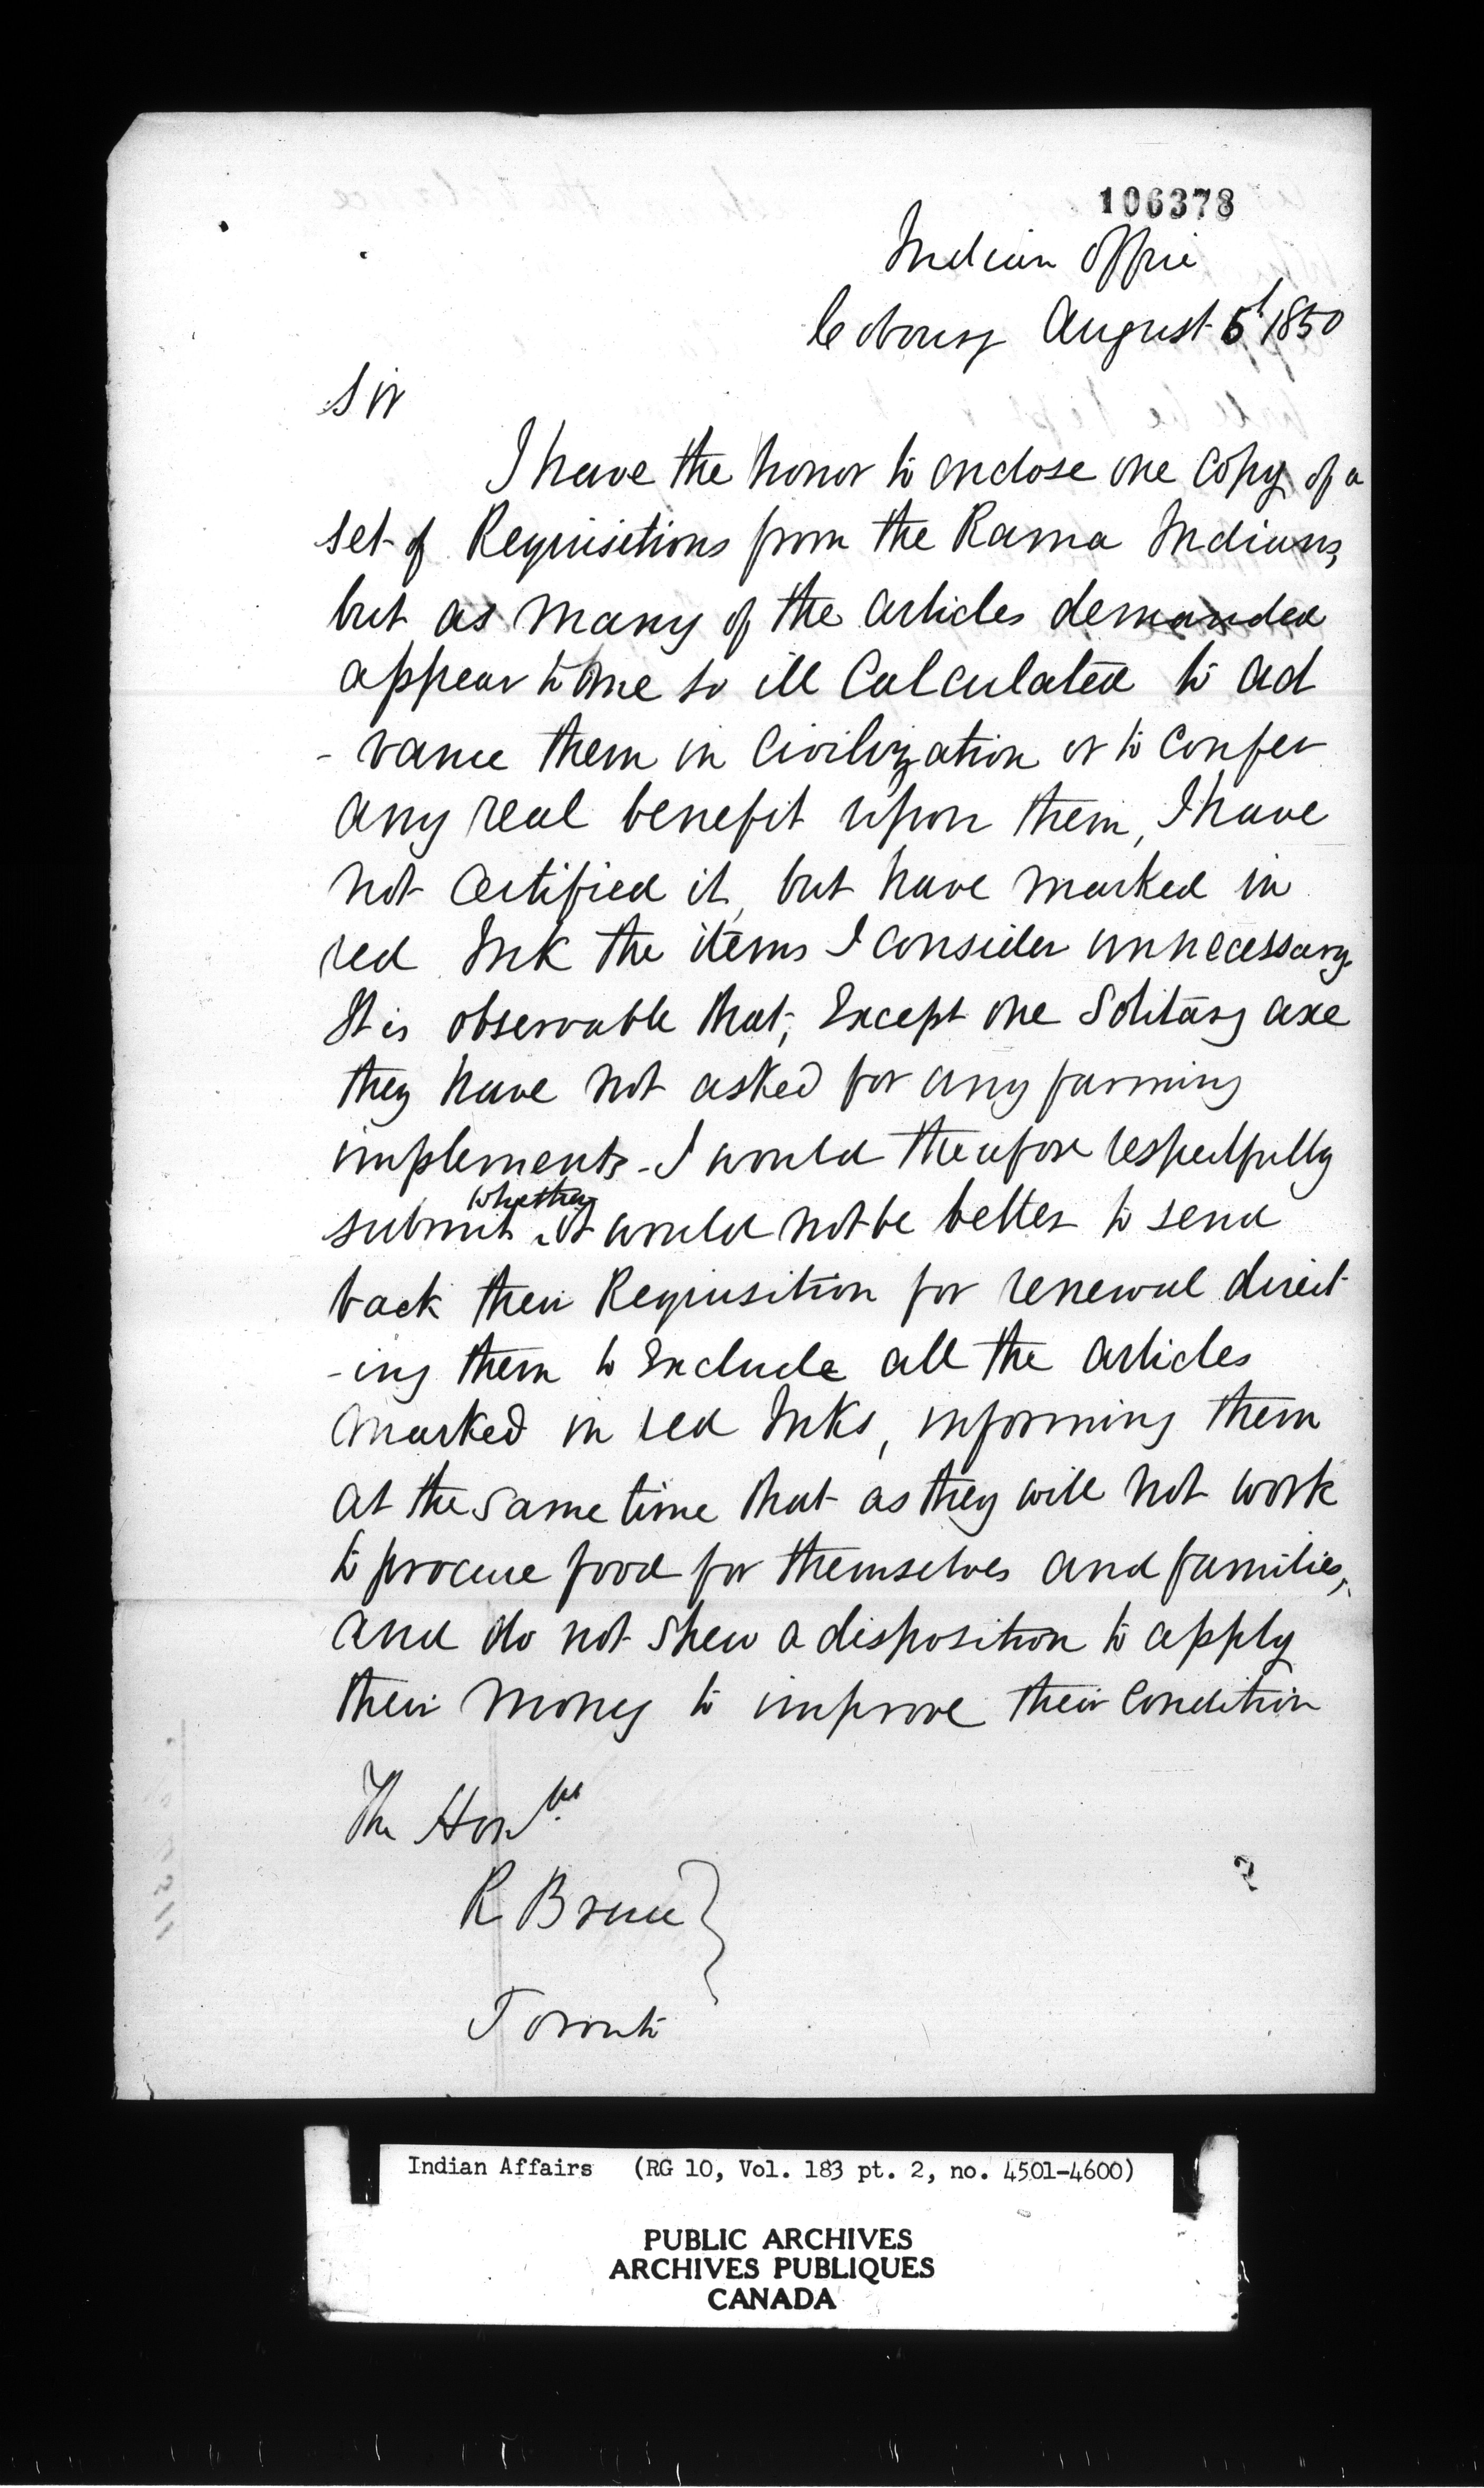 106378
Indian Office
Cobourg August 5th 1850
Sir
I have the honor to enclose one copy of a
set of Requisitions from the Rama Indians,
but as many of the articles demanded
appear to me so ill Calculated to ad
- vance them in Civilization or to confer
any real benefit upon them, I have
not Certified it, but have marked in
red Ink the items I consider unnecessary.
It is observable that, Except one Solitary axe
they have not asked for any farming
implements - I would therefore respectfully
submit whether it would not be better to send
back their Requisition for renewal direct
- ing them to Exclude all the articles
marked in red Inks, informing them
at the same time that as they will not work
to procure food for themselves and families,
and do not shew a disposition to apply
their money to improve their condition
The Honble
R Bruce
Toronto
Indian Affairs (RG 10, Vol. 183 pt. 2, no. 4501-4600)
PUBLIC ARCHIVES
ARCHIVES PUBLIQUES
CANADA